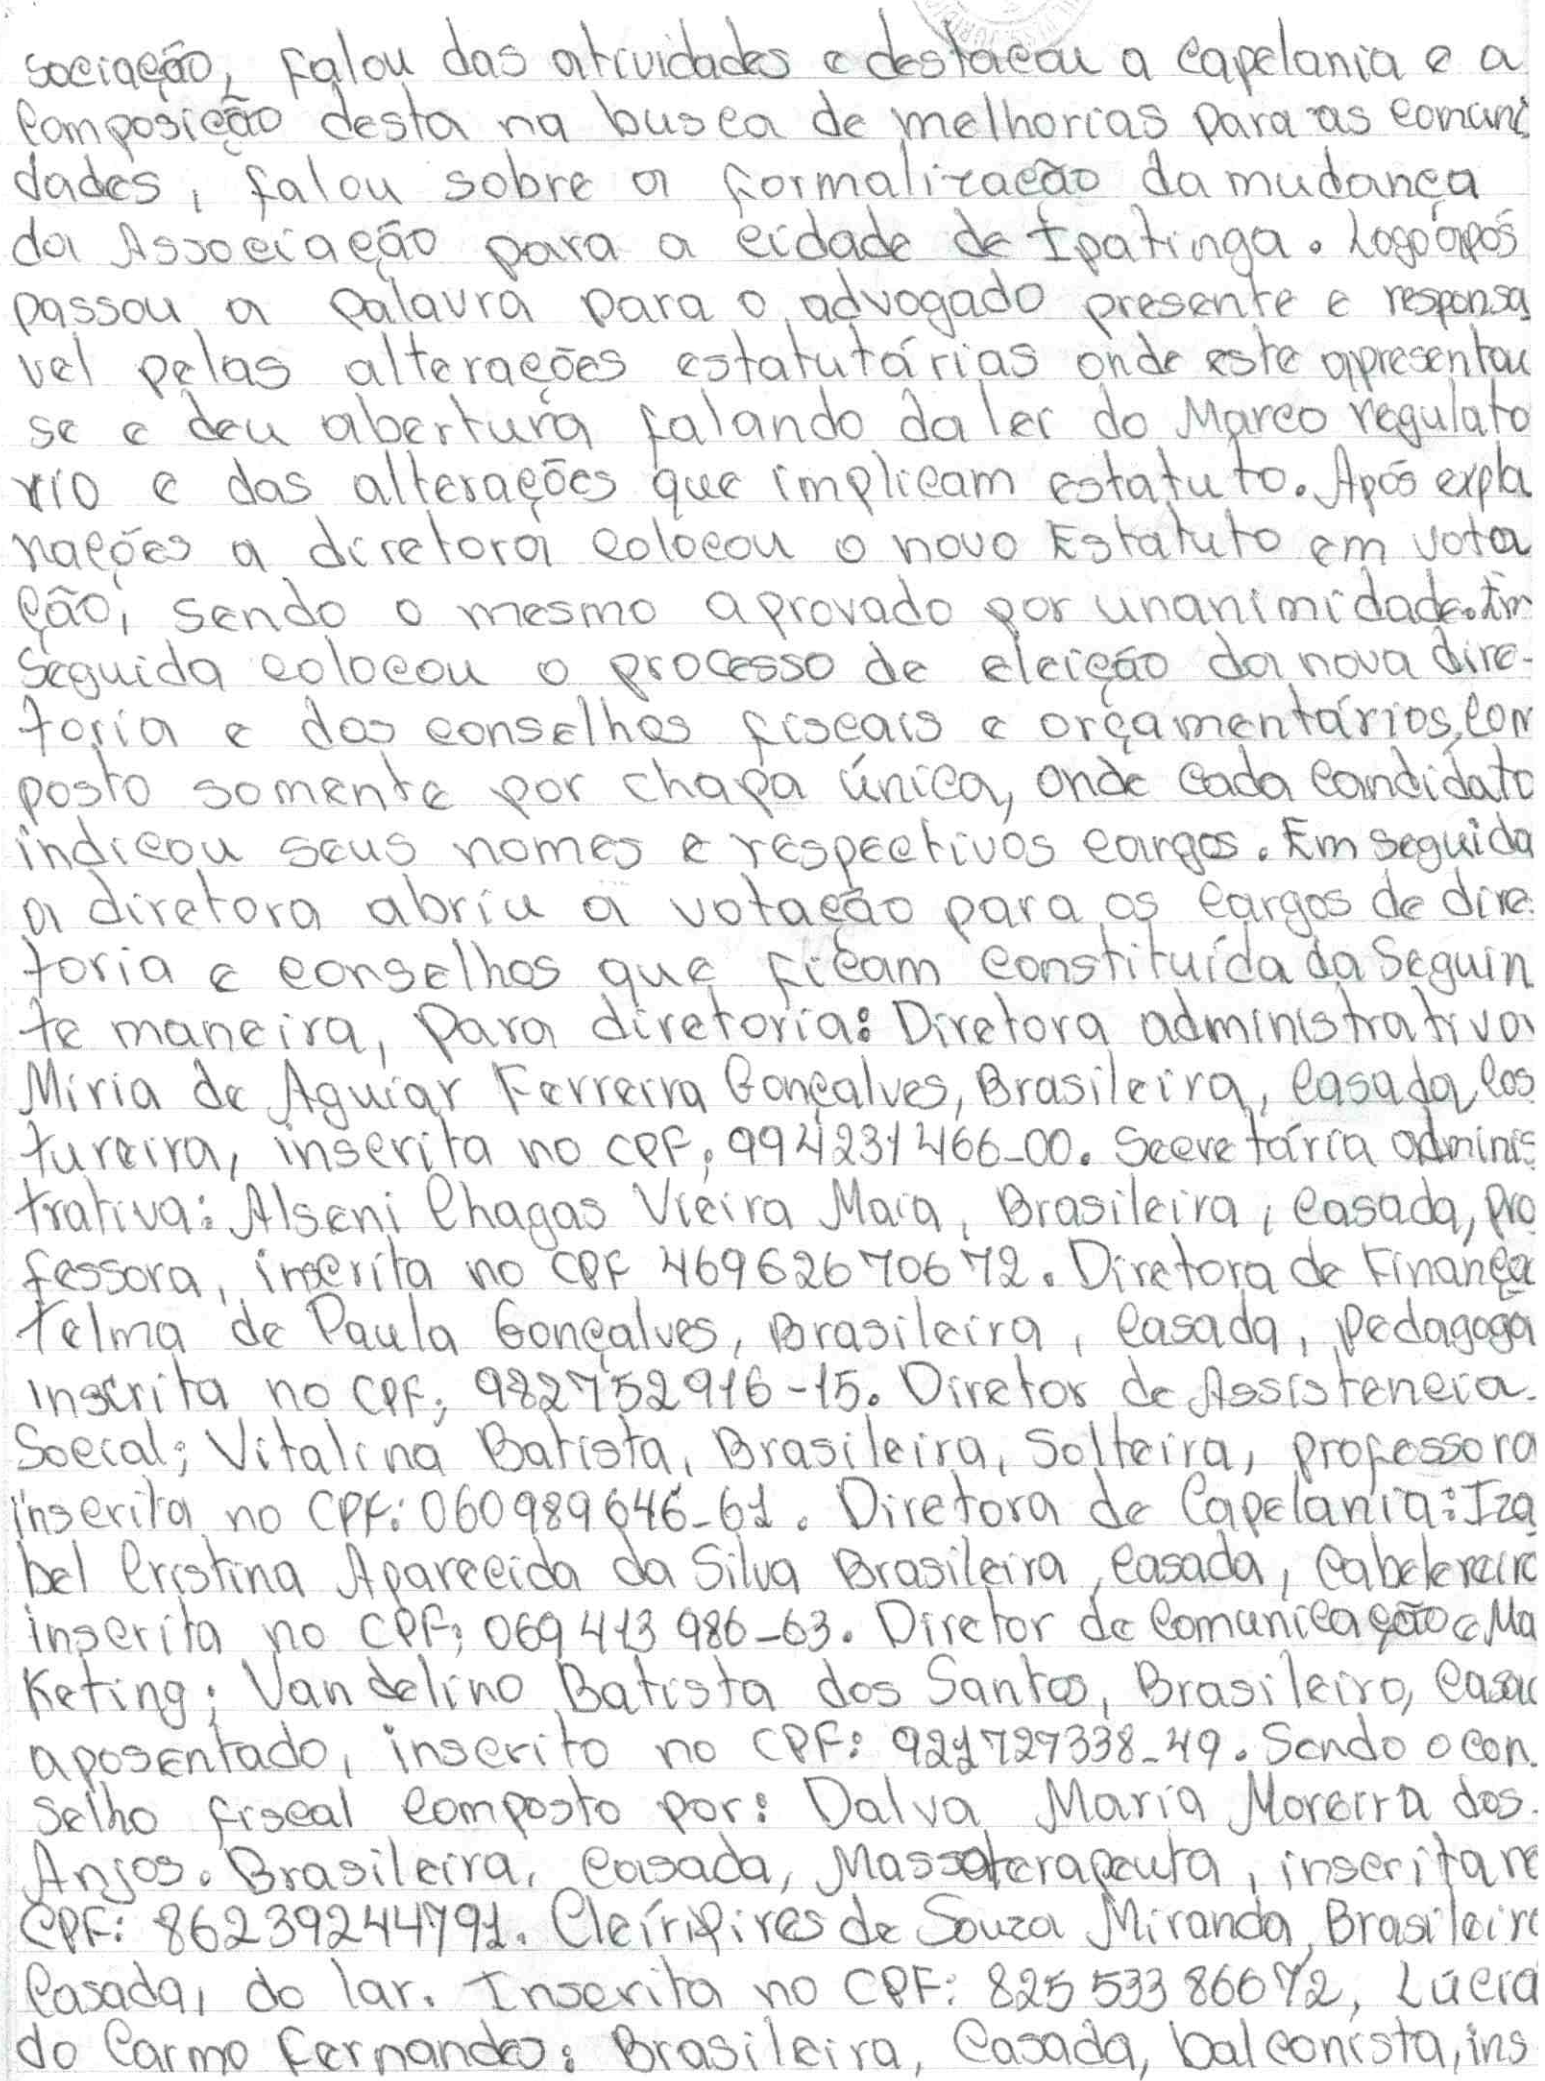 sociação, falou das atividades e destacou a capelania e a
composição desta na busca de melhorias para as comuni
dades, falou sobre a formalização da mudança
da Associação para a cidade de Ipatinga. Logo após
passou a palavra para o advogado presente e responsa
vel pelas alterações estatutárias onde este apresentou
se e deu abertura falando da lei do Marco regulato
rio e das alterações que implicam estatuto. Após expla
nações a diretora colocou o novo Estatuto em vota
ção, sendo o mesmo aprovado por unanimidade. Em
seguida colocou o processo de eleição da nova dire-
toria e dos conselhos fiscais e orçamentários, com
posto somente por chapa única, onde cada candidato
indicou seus nomes e respectivos cargos. Em seguida
a diretora abriu a votação para os cargos de dire-
toria e conselhos que ficam constituída da Seguin
te maneira, para diretoria: Diretora administrativa
Miria de Aguiar Ferreira Gonçalves, Brasileira, casada, cos
tureira, inscrita no CPF; 994231466-00. Secretária adminis
trativa: Alseni Chagas Vieira Maia, Brasileira, casada, pro
fessora, inscrita no CPF 46962670672. Diretora de Finança
Telma de Paula Gonçalves, Brasileira, casada, pedagoga
inscrita no CPF; 982752916-15. Diretor de Assistencia
Social; Vitalina Batista, Brasileira, Solteira, professora
inscrita no CPF: 060989646-61. Diretora de Capelania: Iza
bel Cristina Aparecida da Silva Brasileira, casada, cabeleireir
inscrita no CPF; 069413986-63. Diretor de Comunicação e Ma
Keting; Vandelino Batista dos Santos, Brasileiro, casa
aposentado, inscrito no CPF: 921727338-49. Sendo o con
selho fiscal composto por: Dalva Maria Moreira dos
Anjos. Brasileira, casada, Massoterapeuta, inscrita n
CPF: 86239244791. Cleíri Pires de Souza Miranda, Brasileir
Casada, do lar. Inscrita no CPF: 82553386672, Lúcia
do Carmo Fernandes: Brasileira, Casada, balconista, ins